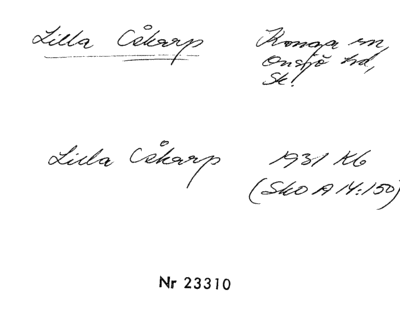 Lilla Cåkarp Konga sn,
Onsjö hd,
Sk.
Lilla Cåkarp 1931 Kb
(SkO A 14:150)
Nr 23310